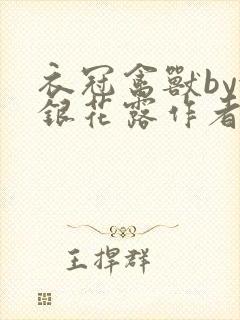 衣冠禽獸by
銀花露作者
王捍群